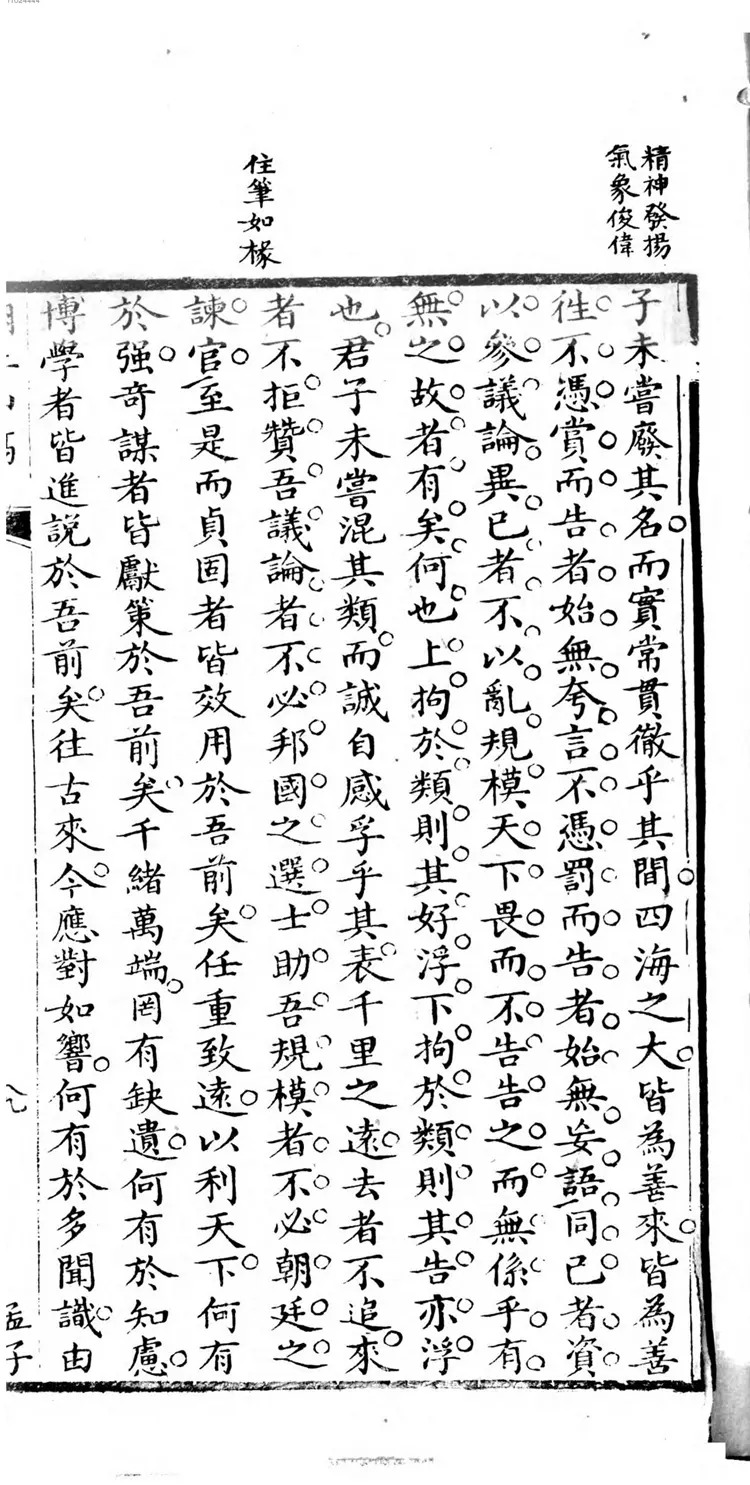 精神發揚
氣象俊偉
住筆如椽
子未嘗廢其名而實常貫徹乎其間四海之大皆為善來皆為善
徃不憑賞而告者始無夸言不憑罰而告者始無妄語同已者資
以參議論異已者不以亂規模天下畏而不告告之而無係乎有
無之故者有矣何也上拘於類則其好浮下拘於類則其告亦浮
也君子未嘗混其類而誠自感孚乎其表千里之遠去者不追來
者不拒贊吾議論者不必邦國之選士助吾規模者不必朝廷之
諫官至是而貞固者皆效用於吾前矣任重致遠以利天下何有
於强奇謀者皆獻策於吾前矣千緒萬端罔有缺遺何有於知慮
博學者皆進説於吾前矣往古來今應對如響何有於多聞識由
孟子